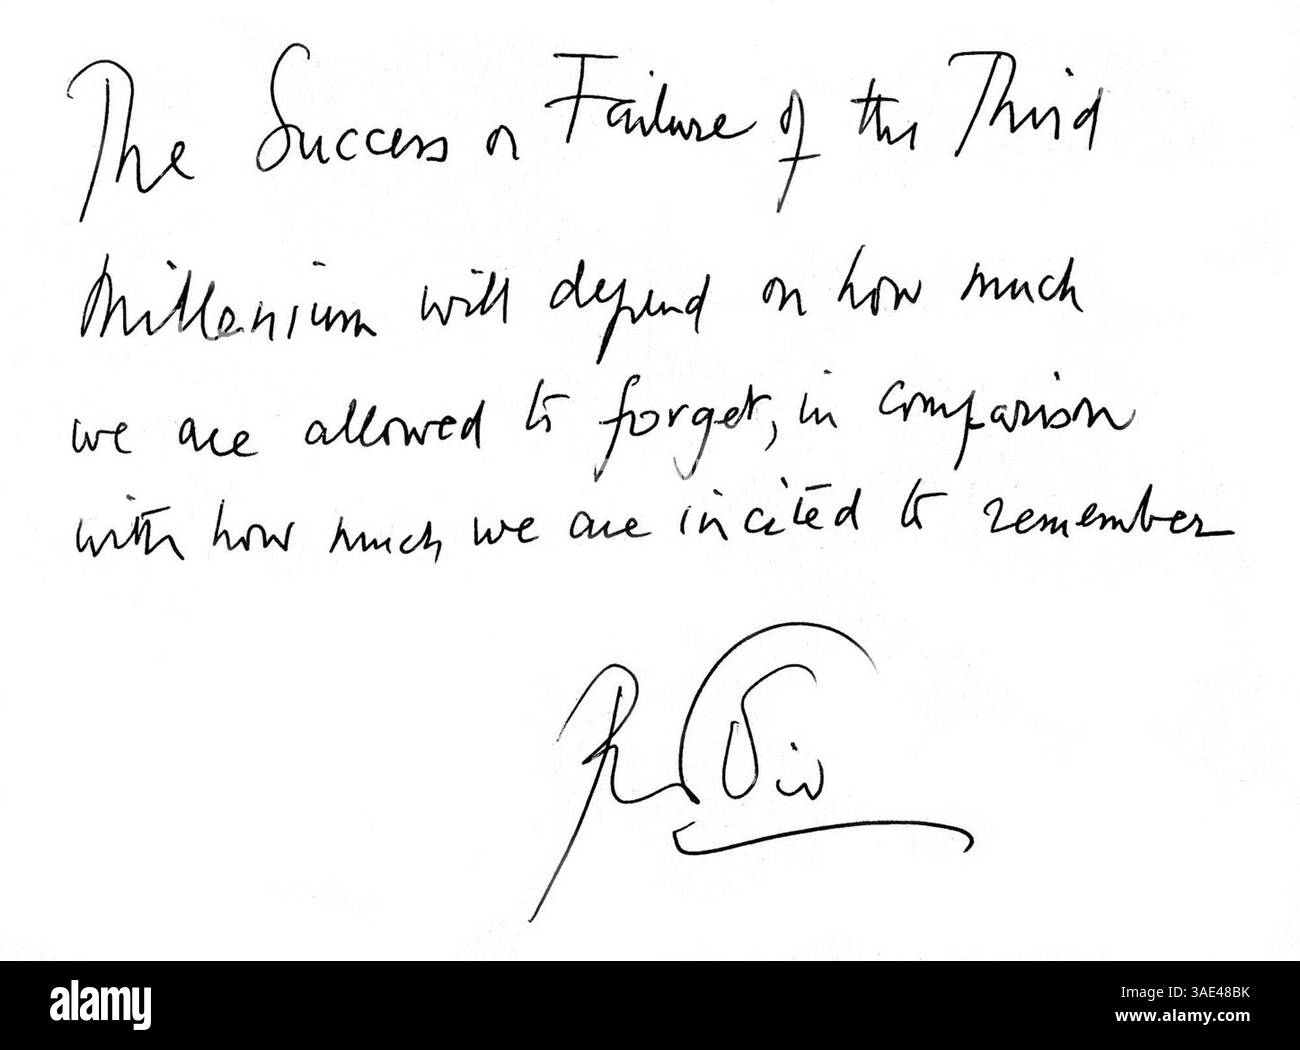 The Success or Failure of the Third
Millenium will depend on how much
we are allowed to forget, in comparison
with how much we are incited to remember
alamy
Image ID: 3AE48BK
www.alamy.com